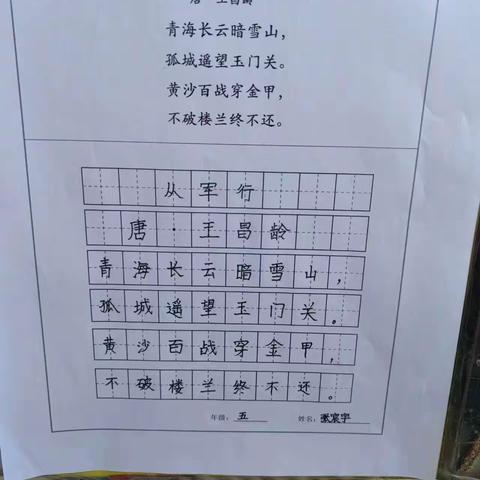 唐 王昌龄
青海长云暗雪山，
孤城遥望玉门关。
黄沙百战穿金甲，
不破楼兰终不还。
从军行
唐·王昌龄
青海长云暗雪山，
孤城遥望玉门关。
黄沙百战穿金甲，
不破楼兰终不还。
年级：五
姓名：张宸宇